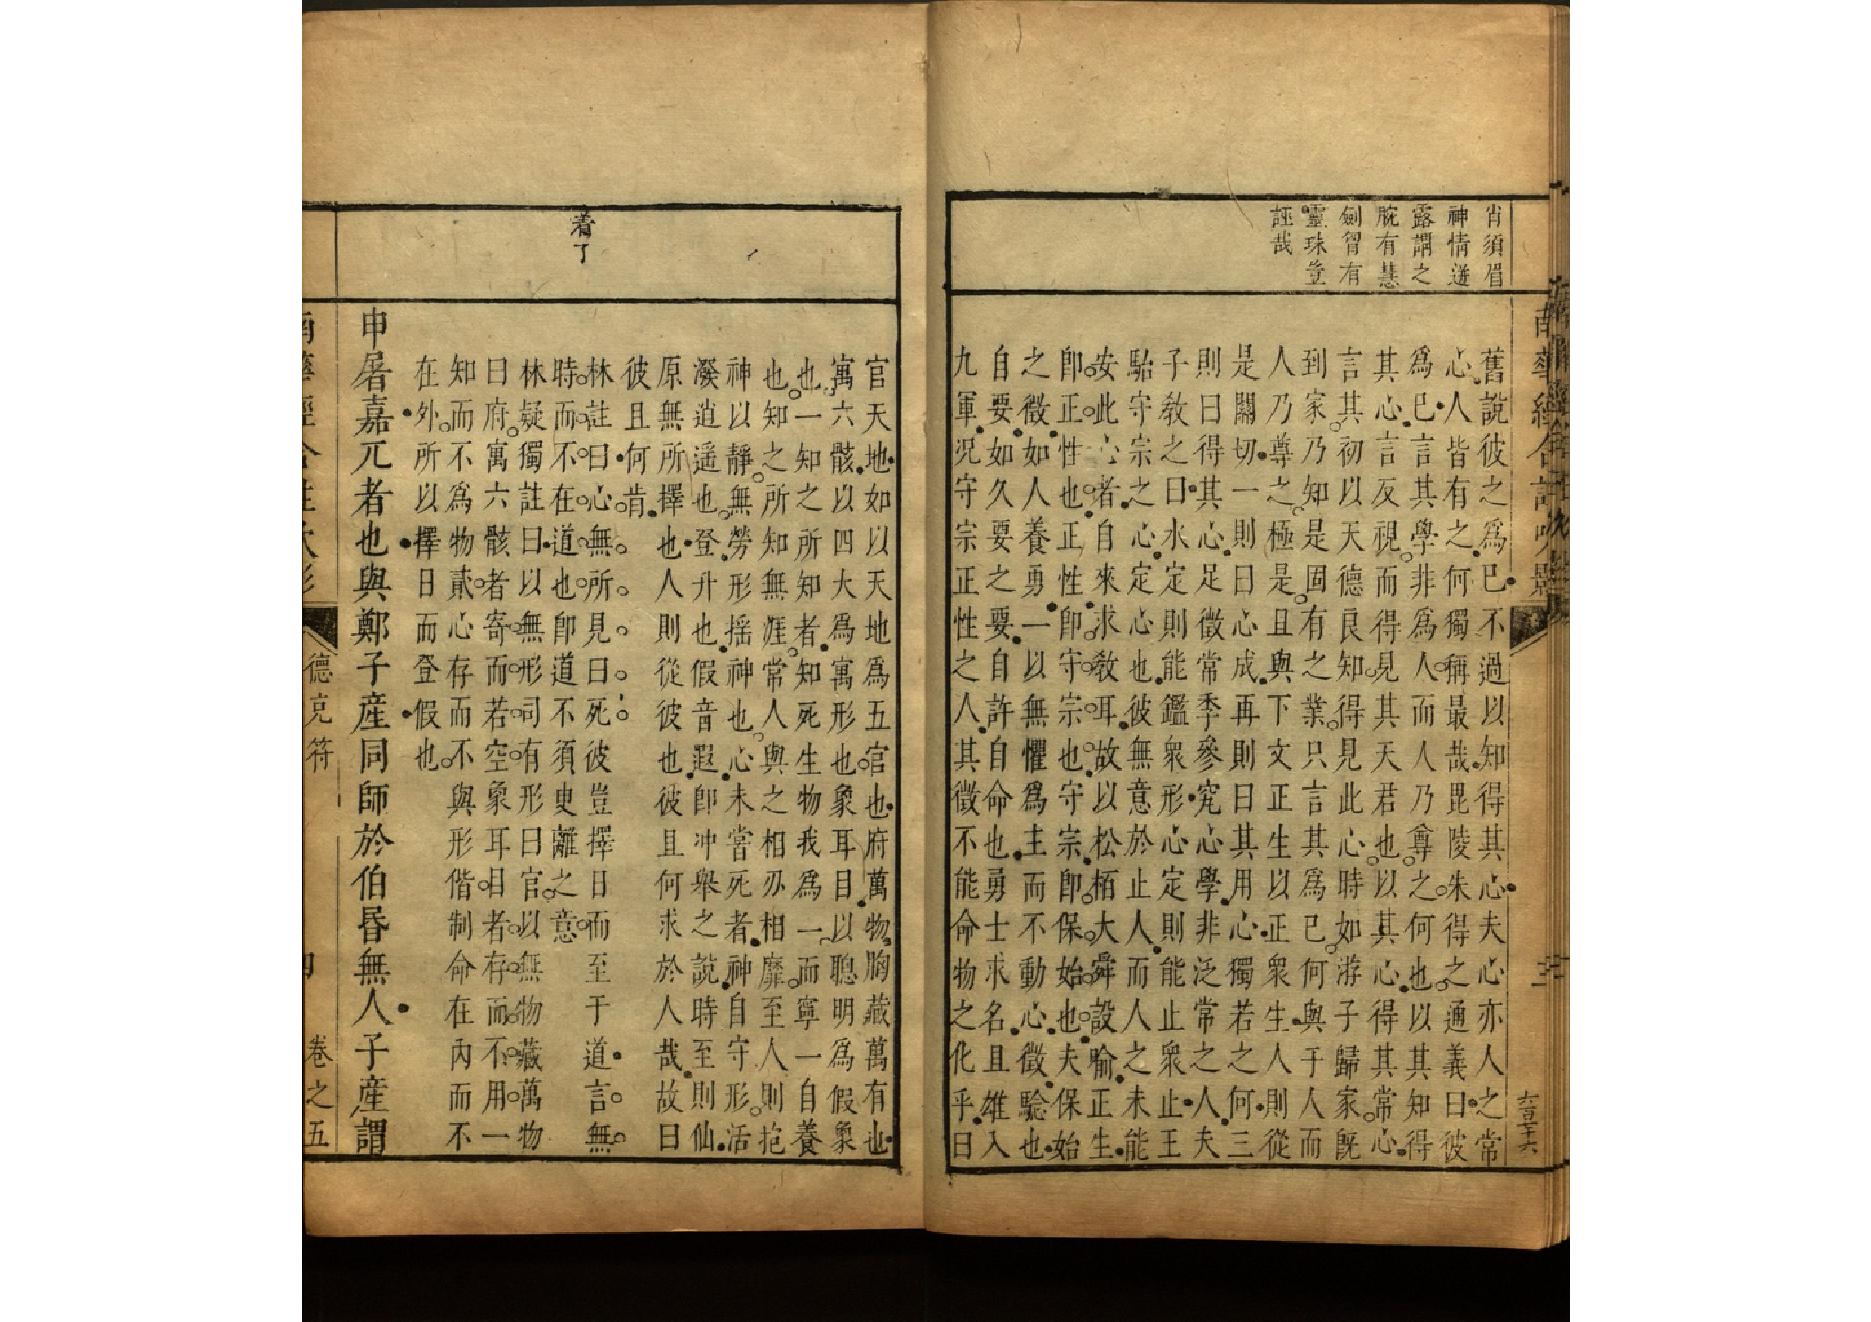 肖須眉
神情遒
露謂之
腕有慧
劍胷有
靈珠豈
誣哉
舊說彼之爲已不過以知得其心夫心亦人之常
心人皆有之何獨稱最哉毘陵朱得之通義曰彼
爲已言其學非爲人而人乃尊之何也以其知得
其心言反視而得見其天君也以其心得其常心
言其初以天德良知得見此心時如游子歸家旣
到家乃知是固有之業只言其爲已何與于人而
人乃尊之極是且與下文正生以正衆生人則從
是關切一則曰心成再則曰其用心獨若之何三
則曰得其心足徵常季參究心學非泛常之人夫
子敎之曰水定則能鑑衆形心定則能止衆止王
駘守宗之心定心也彼無意於止人而人之未能
安此心者自來求敎耳故以松栢大舜設喻正生
卽正性也正性卽守宗也守宗卽保始也夫保始
之徵如人養勇一以無懼爲主而不動心徵驗也
自要如久要之要自許自命也勇士求名且雄入
九軍况守宗正性之人其徵不能命物之化乎曰
南華經
三
六百二十六
官天地如以天地爲五官也府萬物胸藏萬有也
寓六骸以四大爲寓形也象耳目以聰明爲假象
也一知之所知者知死生物我爲一而寧一自養
也知之所知無涯常人與之相刃相靡至人則抱
神以靜無勞形揺神也心未嘗死者神自守形活
潑逍遥也登升也假音遐卽冲舉之說時至則仙
原無所擇也人則從彼也彼且何求於人哉故曰
彼且何肯
林註曰心無所見曰死彼豈擇日而至于道言無
時而不在道也卽道不須㬰離之意
林疑獨註曰以無形司有形曰官以無物藏萬物
曰府寓六骸者寄而若空象耳目者存而不用一
知而不爲物貳心存而不與形偕制命在內而不
在外所以擇日而登假也
申屠嘉兀者也與鄭子產同師於伯昏無人子產謂
德充符
卷之五
着了